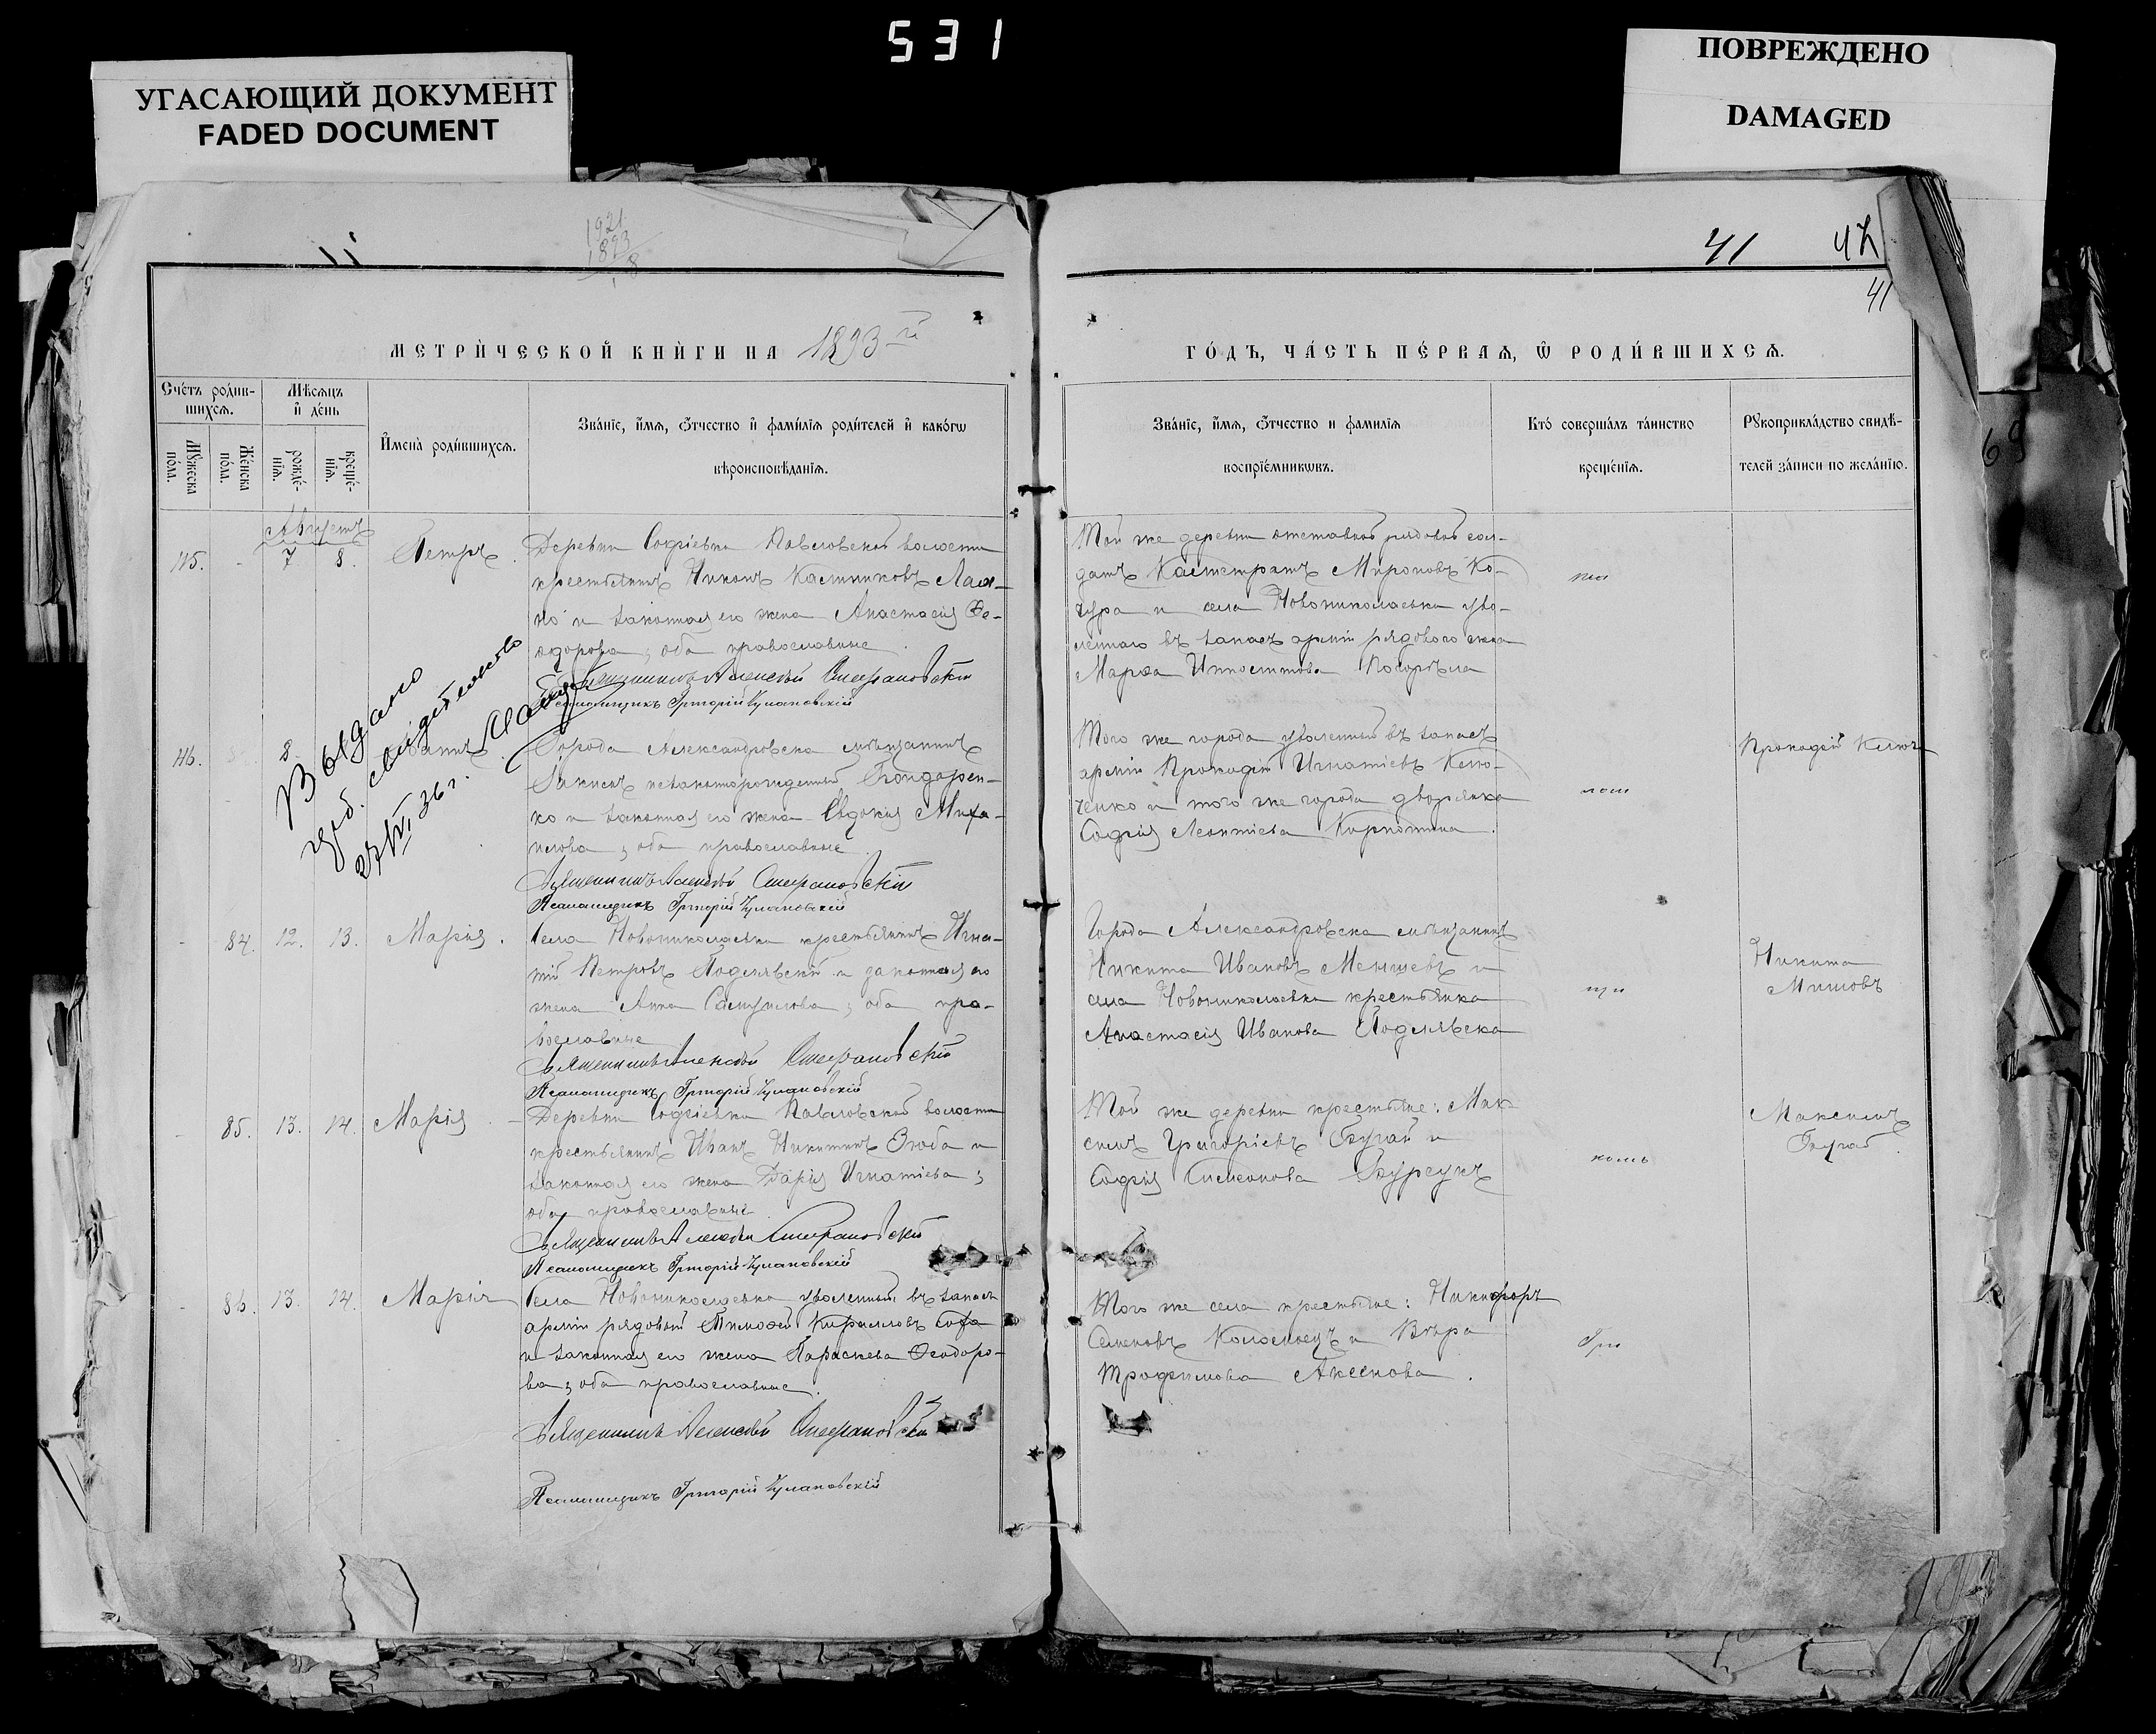 531
УГАСАЮЩИЙ ДОКУМЕНТ
FADED DOCUMENT
ПОВРЕЖДЕНО
DAMAGED
1921
1893
18
41
41
69
МЕТРИ́ЧЕСКОЙ КНИ́ГИ НА 1893 й
ГО́ДЪ, ЧА́СТЬ ПЕ́РВАѦ, Ѿ РОДИ́ВШИХСѦ.
Сче́тъ роди́в-
шихсѧ.
Мꙋжеска
по́ла.
Же́нска
по́ла.
Мѣ́сѧцъ
и҆ де́нь
рожде́-
нїѧ.
креще́-
нїѧ.
И҆мена̀ роди́вшихсѧ.
Зва́нїе, и҆́мѧ, ѻ҆́тчество и҆ фами́лїѧ роди́телей и҆ како́гѡ
вѣроисповѣ́данїѧ.
Зва́нїе, и҆́мѧ, ѻ҆́тчество и фамилїѧ
воспрїе́мникѡвъ.
Кто̀ соверша́лъ та́инство
креще́нїѧ.
Рꙋкоприкла́дство свидѣ́-
телей за́писи по жела́нїю.
Августъ
115. - 7 8. Петръ.
Деревни Софіевки Павловской волости
крестьянинъ Никонъ Калиниковъ
и законная его жена Анастасія Ѳе-
одорова, оба православные
Священникъ Алексѣй Стефановскій
Псаломщикъ Григорій Чулановскій
Той же деревни отставной рядовой сол-
датъ Калистратъ Мироновъ Ко-
и села Новониколаевки уво-
леннаго въ запасъ арміи рядового жена
Марѳа Ипполитова
Выдано
свидетельство
27/VI 36 г.
116. 8.
Города Александровска мѣщанинъ
незаконнорожденный Бондарен-
ко и законная его жена Евдокія Михаи-
лова, оба православные
Священникъ Алексѣй Стефановскій
Псаломщикъ Григорій Чулановскій
Того же города уволенный въ запасъ
арміи Прокофій Игнатіевъ Клю-
ченко и того же города дворянка
Софія Леонтіева
Прокофій
- 84. 12. 13. Марія.
Села Новониколаевки крестьянинъ Игна-
тій Петровъ и законная его
жена Анна Самуилова, оба пра-
вославные
Священникъ Алексѣй Стефановскій
Псаломщикъ Григорій Чулановскій
Города Александровска мѣщанинъ
Никита Ивановъ и
села Новониколаевки крестьянка
Анастасія Иванова
Никита
- 85. 13. 14. Марія
Деревни Софіевки Павловской волости
крестьянинъ Иванъ Никитинъ Зюба и
законная его жена Дарія Игнатіева;
оба православные
Священникъ Алексѣй Стефановскій
Псаломщикъ Григорій Чулановскій
Той же деревни крестьяне: Мак-
симъ Григоріевъ Бугай и
Софія Симеонова Бурсукъ
Максимъ
Бугай
- 86. 13. 14. Марія
Села Новониколаевки уволенный въ запасъ
арміи рядовой Тимоѳей Кирилловъ Соха
и законная его жена Параскева Ѳеодоро-
ва, оба православные.
Священникъ Алексѣй Стефановскій
Псаломщикъ Григорій Чулановскій
Того же села крестьяне: Никифоръ
Семеновъ Коломоецъ и Вѣра
Трофимова Аксенова.